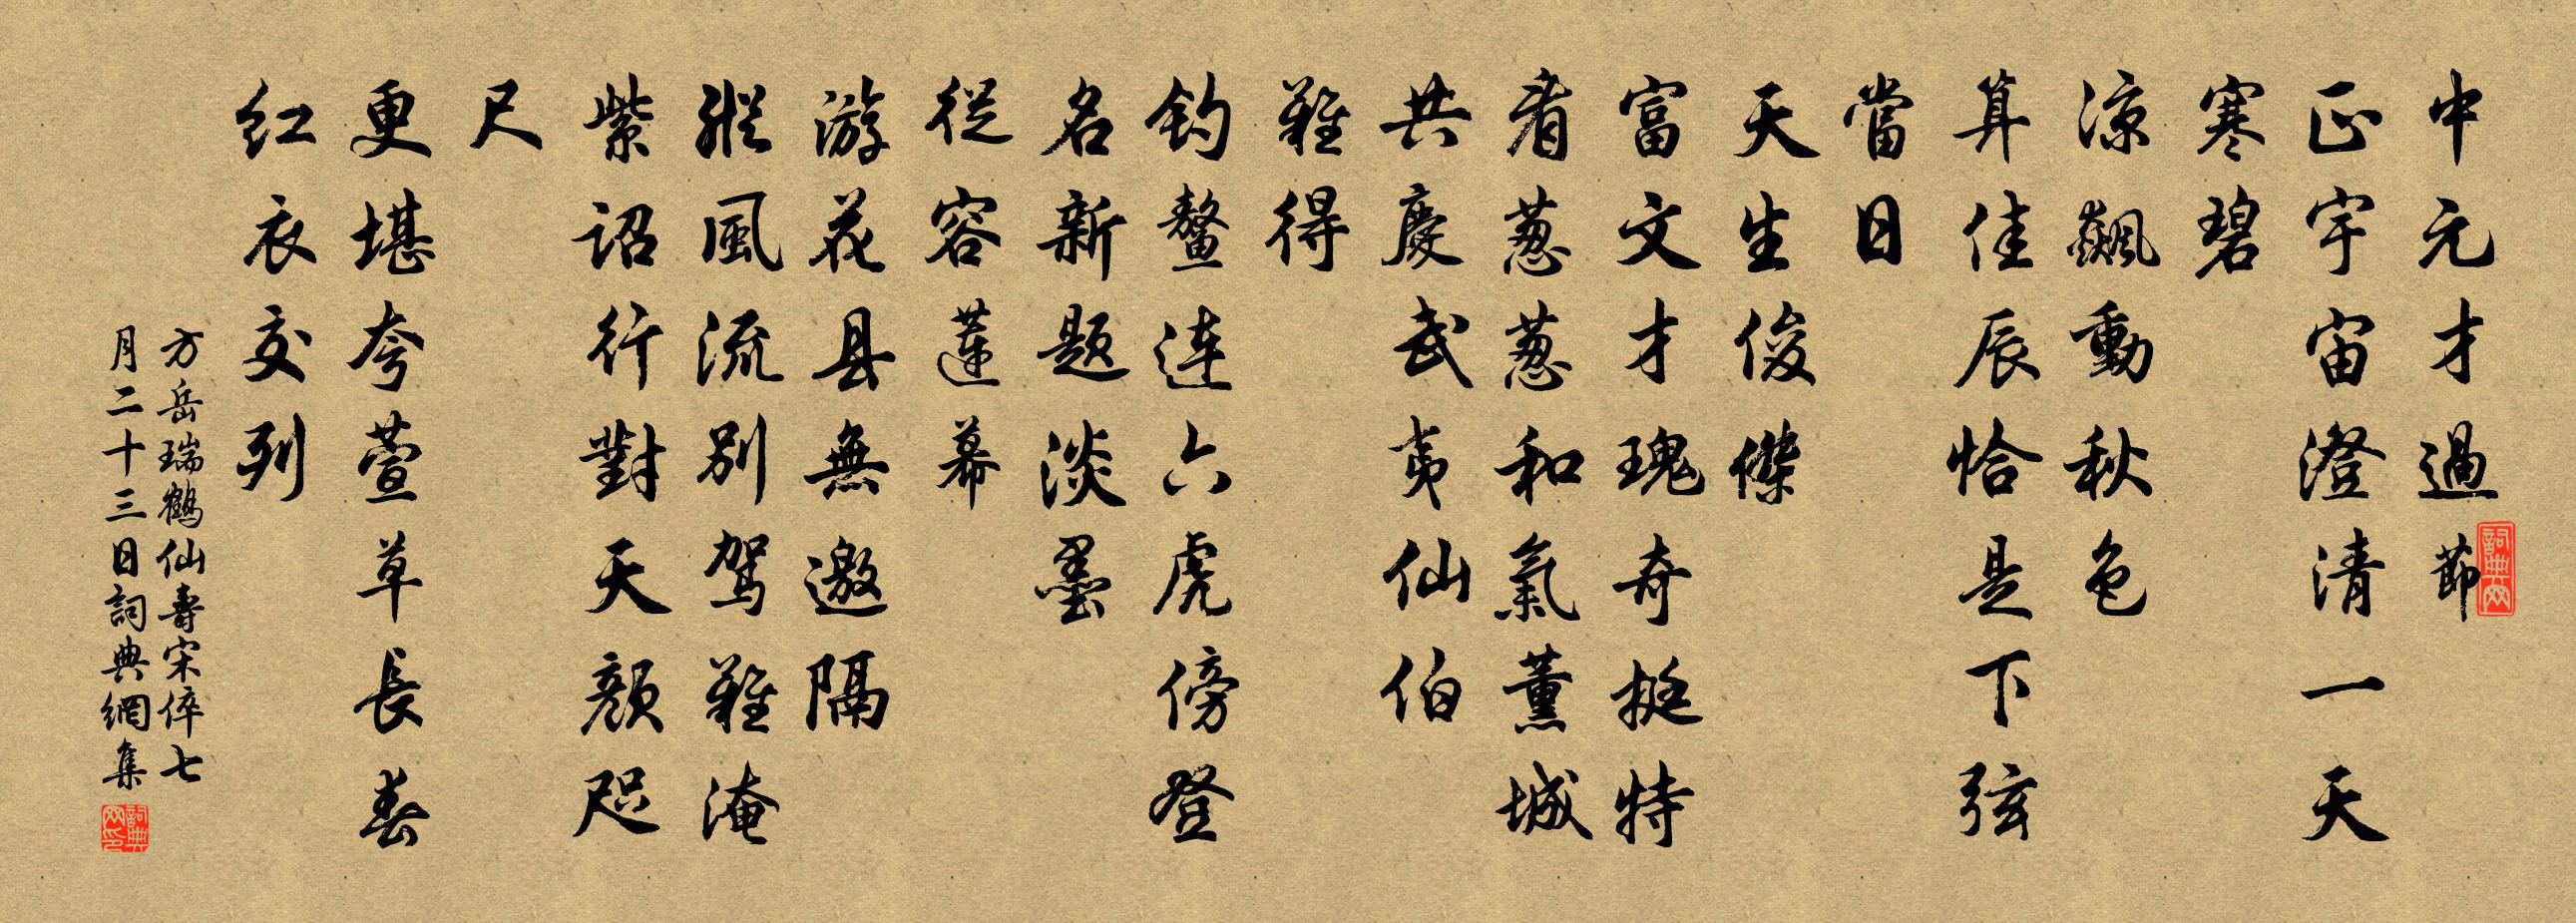 中元才過節
正宇宙澄清一天
寒碧
涼飆動秋色
算佳辰恰是下弦
當日
天生俊傑
富文才瑰奇挺特
看蔥蔥和氣薰城
共慶武夷仙伯
難得
釣鳌连六虎傍登
名新题淡墨
從容蓮幕
游花县無邀隔
縱風流别駕難淹
紫诏行對天顏咫
尺
更堪夸萱草長春
红衣交列
方岳瑞鶴仙壽宋倅七
月二十三日詞典網集
詞典网
詞典网印